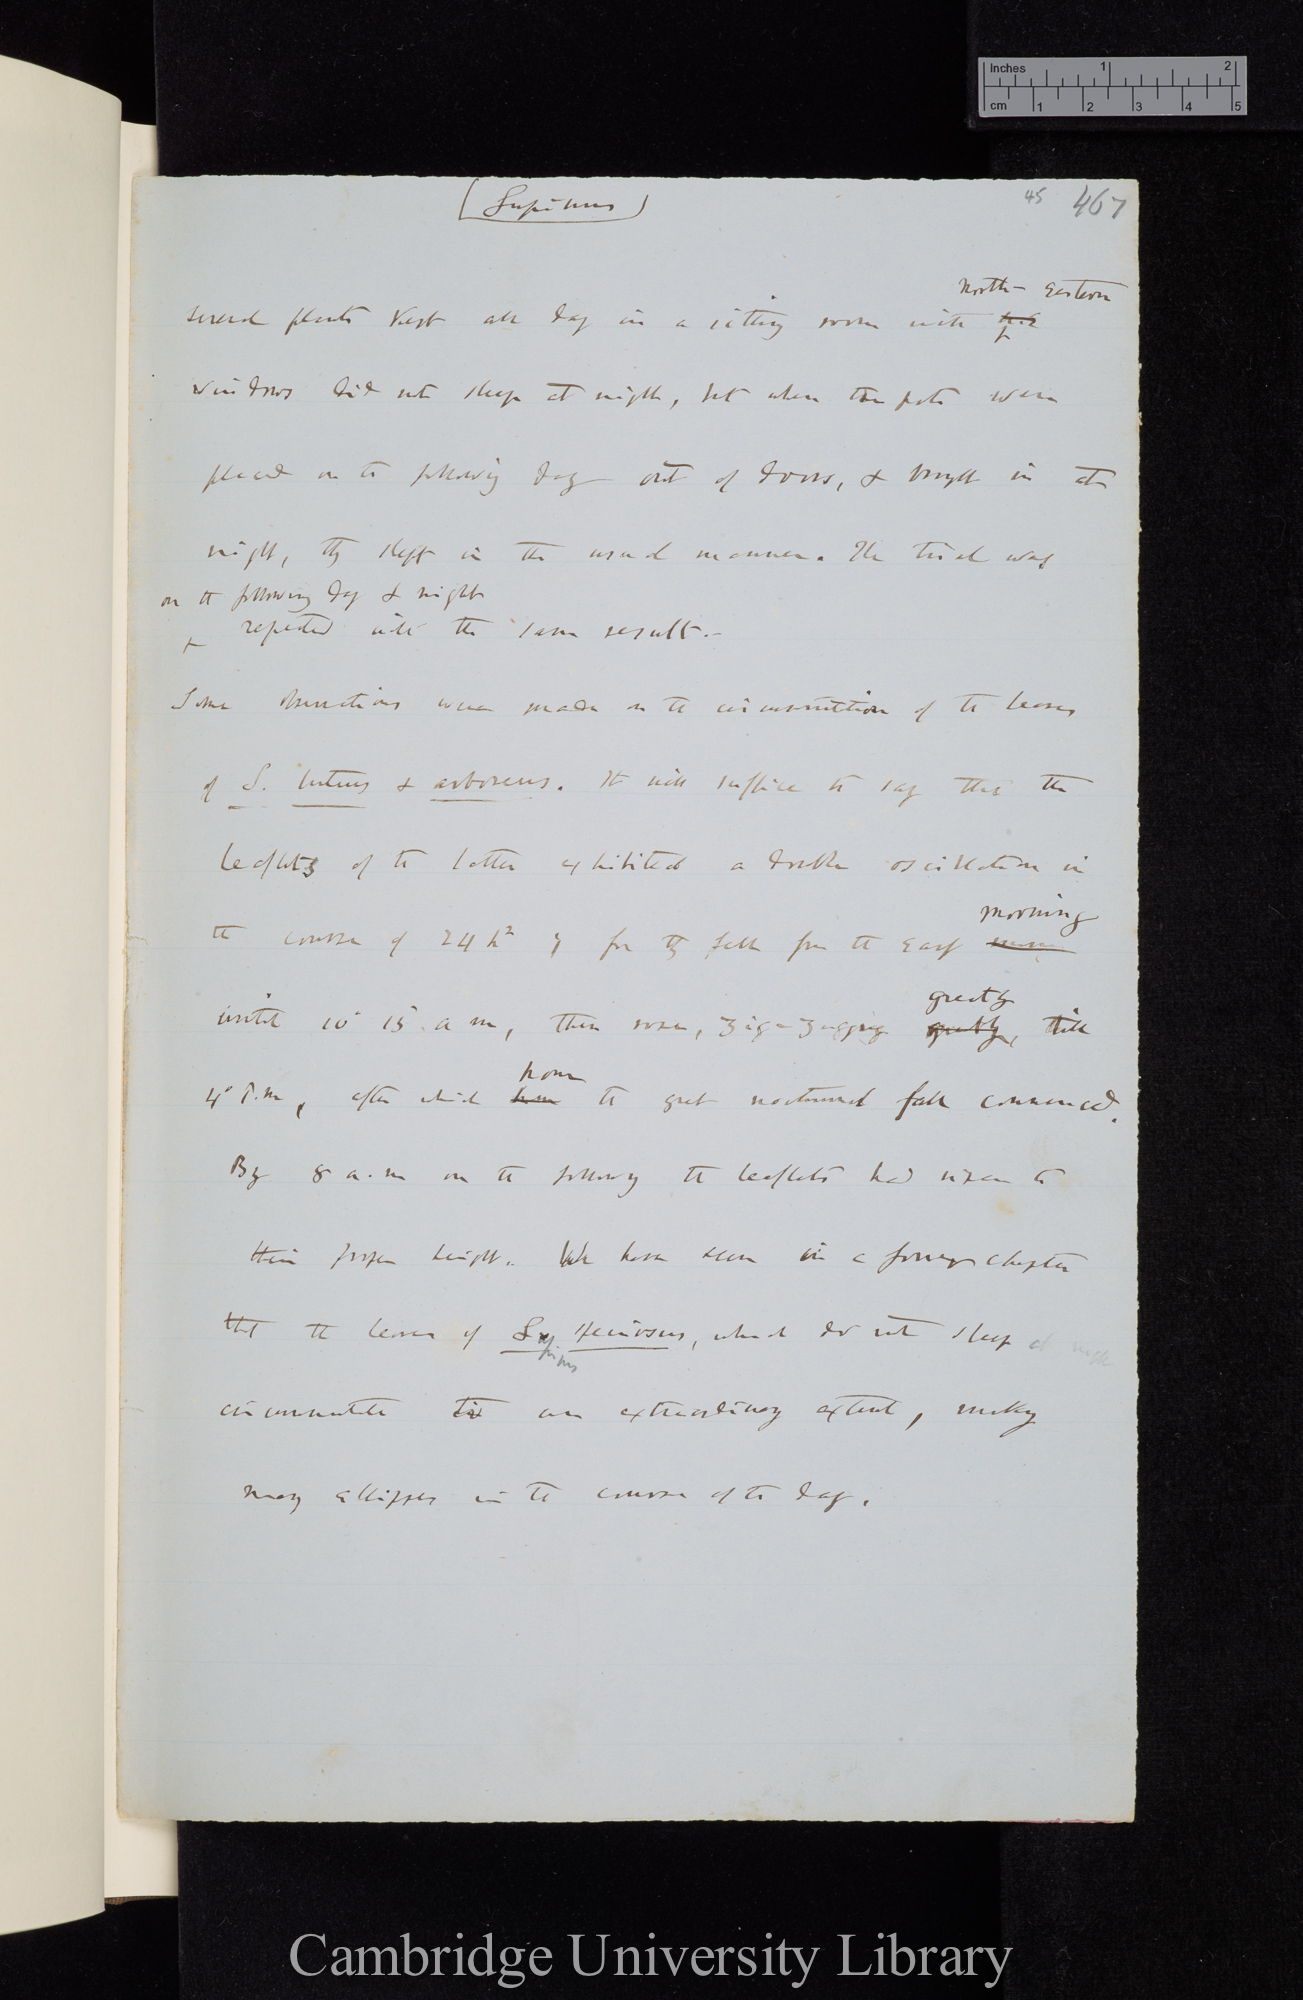 Inches 1 2
cm 1 2 3 4 5
(Lupinus)
45 467
North-Eastern
several plants kept all day in a sitting room with
windows did not sleep at night, but when the pots were
placed on the following day out of doors, & brought in at
night, they slept in the usual manner. The trial was
on the following day & night
repeated with the same result.-
Some observations were made on the circumnutation of the leaves
of L. luteus & arboreus. It will suffice to say that the
leaflets of the latter exhibited a double oscillation in
morning
the course of 24 h; for they fell from the early
greatly
until 10° 15 a m, then rose, zig-zagging greatly, till
hour
4° P.m, after which hour the great nocturnal fall commenced.
By 8 a.m on the following the leaflets had risen to
their proper height. We have seen in a former chapter
that the leaves of Lup speciosus, which do not sleep at night
inus
circumnutate to an extraordinary extent, making
many ellipses in the course of the day.
Cambridge University Library